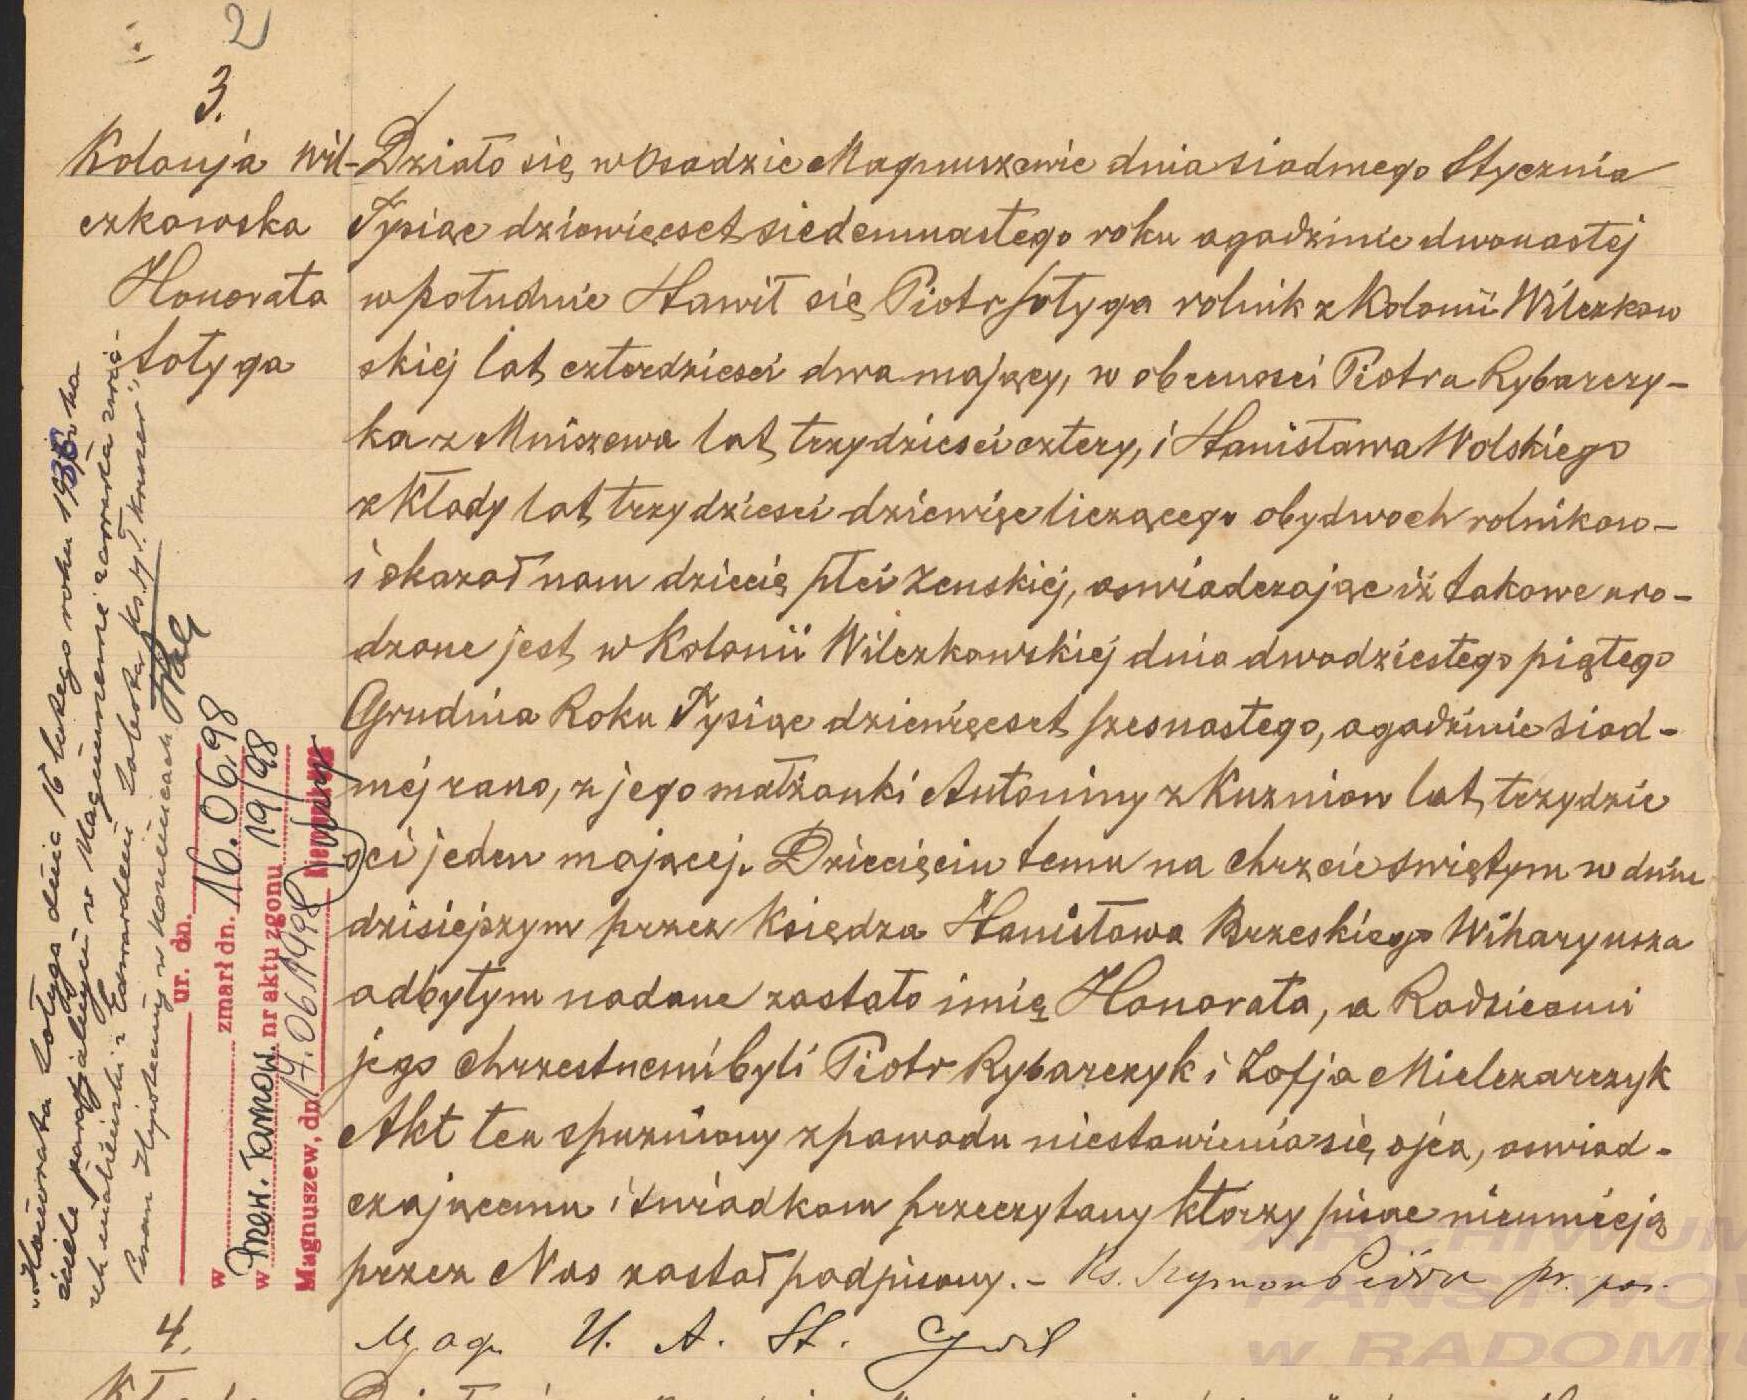 2
3.
Kolonja Wil-
czkowska
Honorata
Łotyga
Działo się w Osadzie Magnuszewie dnia siodmego Stycznia
Tysiąc dziewięcset siedemnastego roku o godzinie dwonastej
w południe Stawił się Piotr Łotyga rolnik z Kolonii Wilczkow
skiej lat czterdziesci dwa mający, w obecnosci Piotra Rybarczy-
ka z Mniszewa lat trzydziesci cztery, i Stanisława Wolskiego
z Kłody lat trzydziesci dziewięc liczącego obydwoch rolnikow-
i okazał nam dziecię płci żenskiej, oswiadczając iż takowe uro-
dzone jest w Kolonii Wilczkowskiej dnia dwodziestego piątego
Grudnia Roku Tysiąc dziewięcset szesnastego, o godzinie siod-
mej rano, z jego małżonki Antoniny z Kuznion lat trzydzie
sci jeden mającej. Dziecięciu temu na chrzcie swiętym w dniu
dzisiejszym przez Księdza Stanisława Brzeskiego Wikaryusza
odbytym nadane zostało imię Honorata, a Rodzicami
jego chrzestnemi byli Piotr Rybarczyk i Zofja Mielczarczyk
Akt ten spuzniony z powodu niestawienia się ojca, oswiad-
czającemu i swiadkom przeczytany ktorzy pisac nieumieją
przez Nas został podpisany. - Ks. Szymon pr. par.
Mag. U. A. St. Cywil
"Honorata Łotyga dnia 16 lutego roku 1938 w ko
ściele parafjalnym w Magnuszewie zawarła zwią-
zek małżeński z Edwardem Zabo Ks. T.
ur. dn.
w zmarł dn. 16.06.98
w nr aktu zgonu 19/98
Magnuszew, dn. 17.06.1998
4.
ARCHIWUM
PAŃSTWOW
W RADOMIU